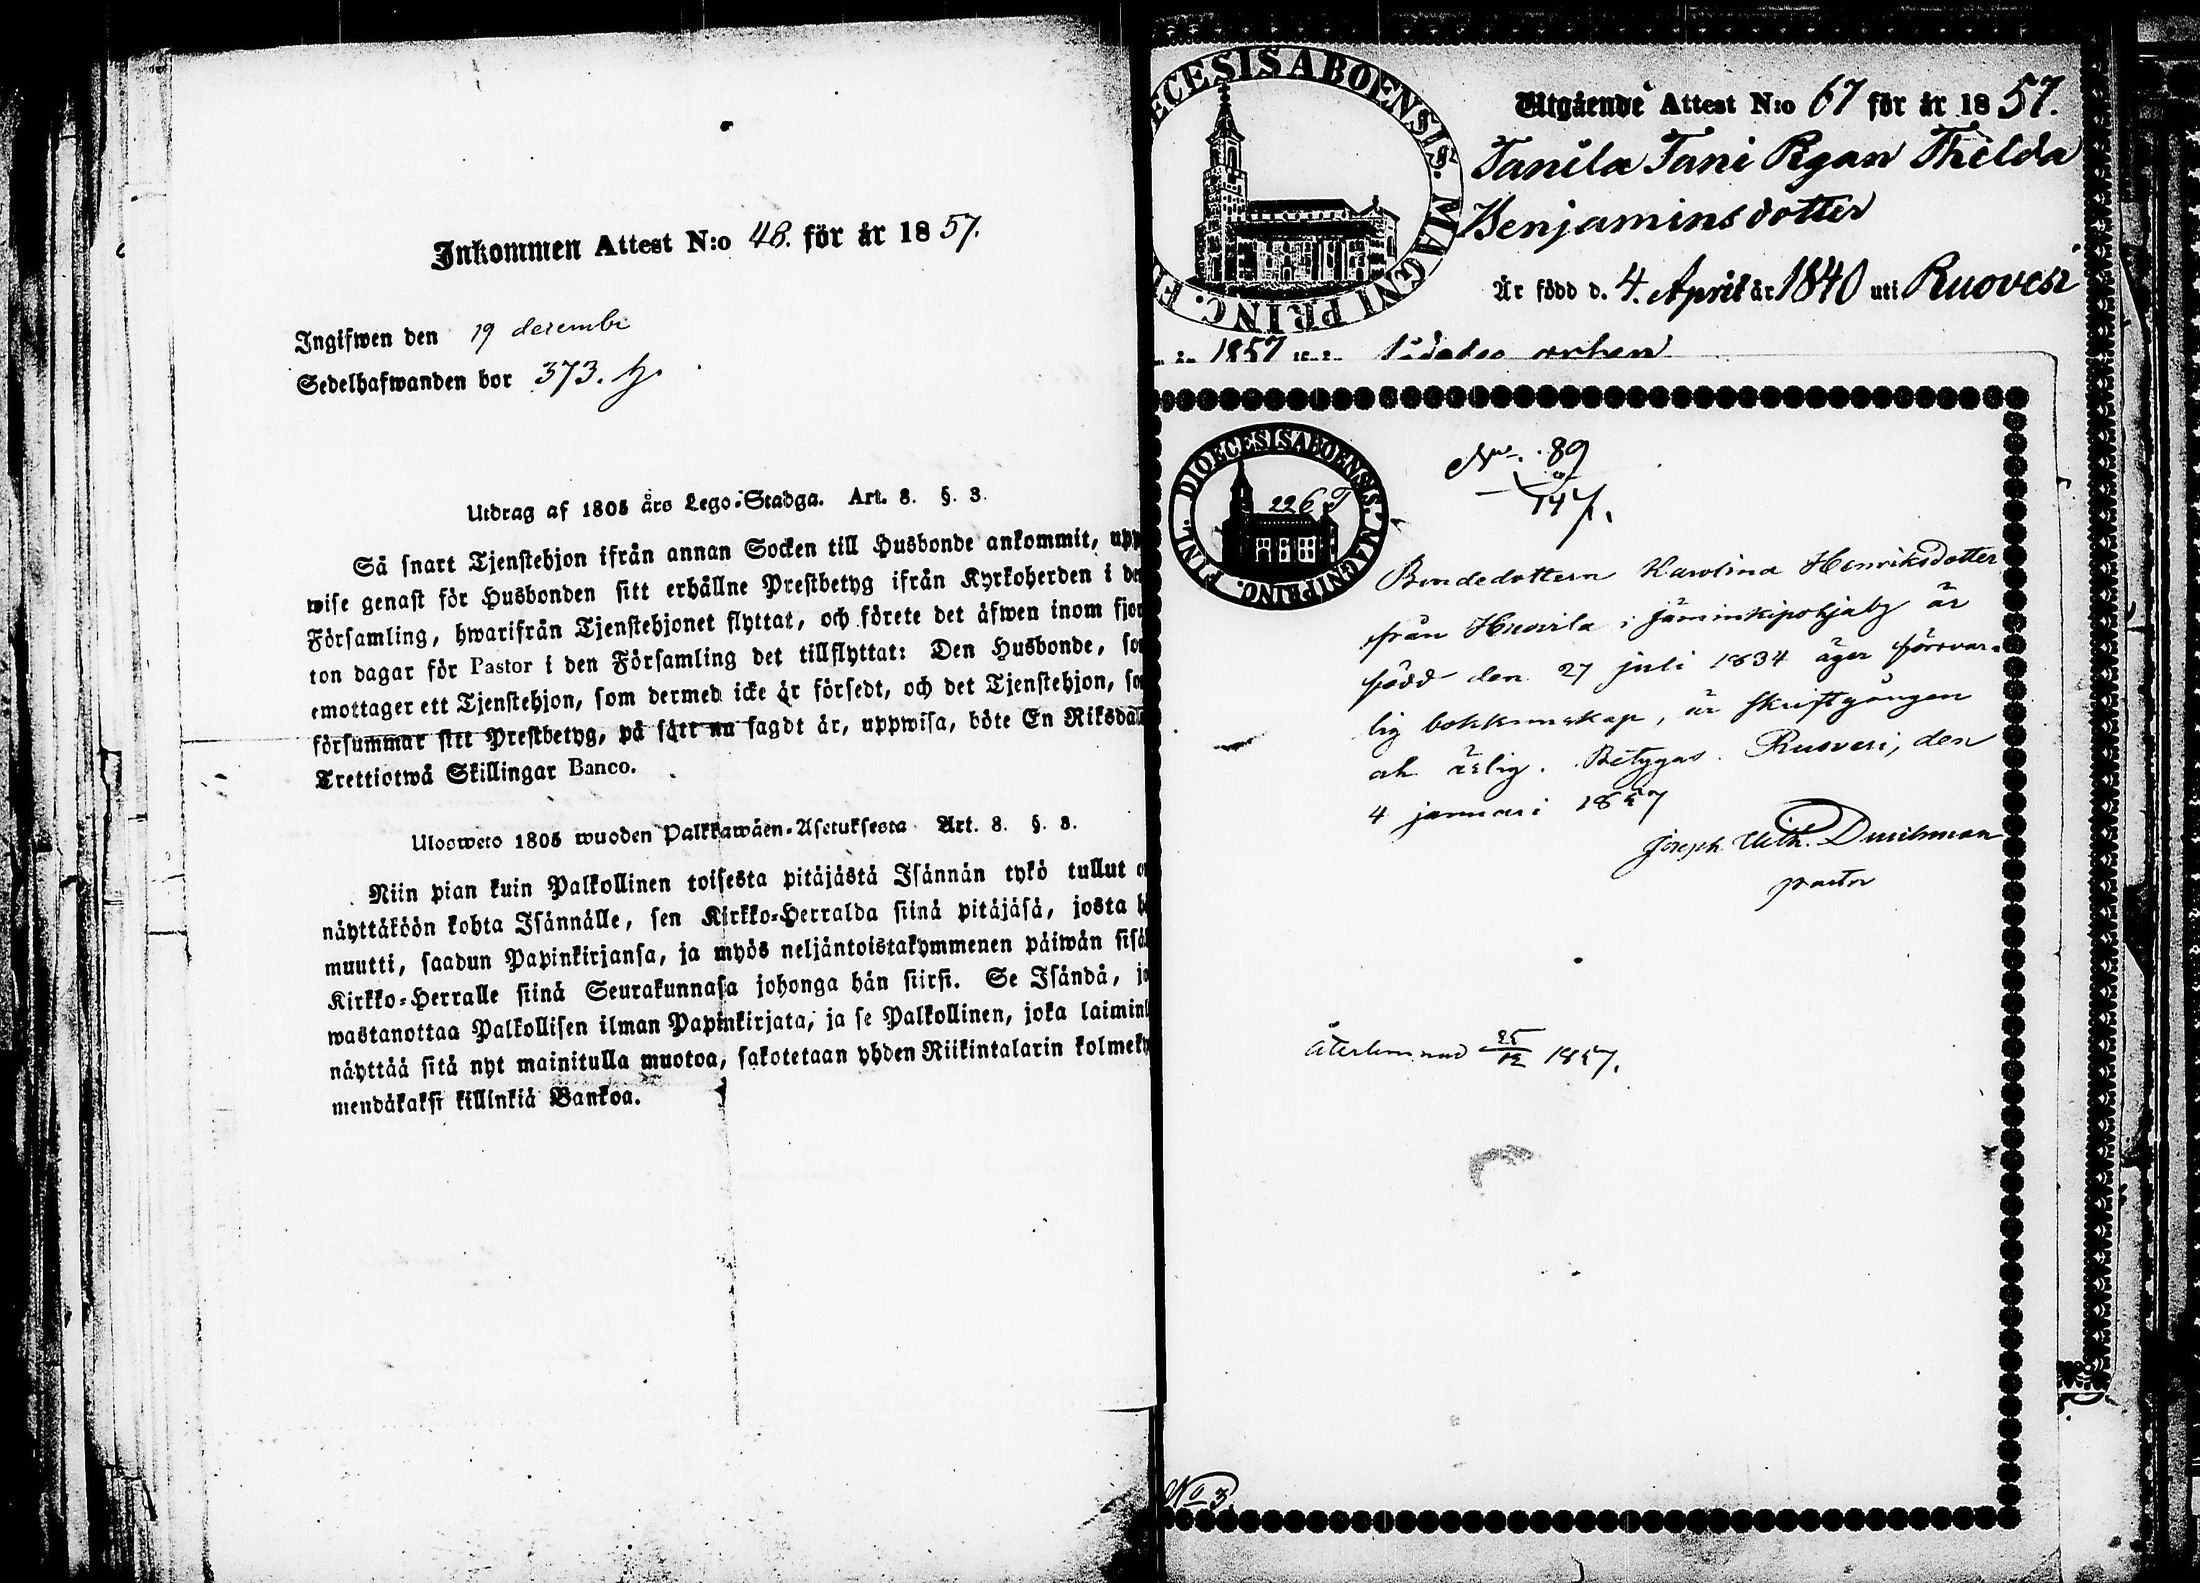 Inkommen Attest N:o 48. för år 1857.
Ingifwen den 19 decembr
Sedelhafwanden bor 373. h.
Utdrag af 1805 års Lego-Stadga. Art. 8. §. 3.
Så snart Tjenstehjon ifrån annan Socken till Husbonde ankommit, upp
wise genast för Husbonden sitt erhållne Prestbetyg ifrån Kyrkoherden i den
Församling, hwarifrån Tjenstehjonet flyttat, och förete det äfwen inom fjor
ton dagar för Pastor i den Församling det tillflyttat: Den Husbonde, so
emottager ett Tjenstehjon, som dermed icke är försedt, och det Tjenstehjon, so
försummar sitt Prestbetyg, på sätt nu sagdt är, uppwisa, böte En Riksdal
Trettiotwå Skillingar Banco.
Ulosweto 1805 wuoden Palkkawäen-Asetuksesta Art. 8. §. 3.
Niin pian kuin Palkollinen toisesta pitäjästä Isännän tykö tullut o
näyttäköön kohta Isännälle, sen Kirkko-Herralda siinä pitäjäsä, josta h
muutti, saadun Papinkirjansa, ja myös neljäntoistakymmenen päiwän sisäl
Kirkko-Herralle siinä Seurakunnasa johonga hän siirsi. Se Isändä, jo
wastanottaa Palkollisen ilman Papinkirjata, ja se Palkollinen, joka laiminl
näyttää sitä nyt mainitulla muotoa, sakotetaan yhden Riikintalarin kolmeky
mendäkaksi killinkiä Bankoa.
ECESIS ABOENSIS. MAGNI PRINC. F
Utgående Attest N:o 67 för år 1857.
Tanila Tani Pigan Thilda
Benjaminsdotter
Är född d. 4. April år 1840 uti Ruovesi
1857
DIOECESIS ABOENSIS. MAGNI PRINC. FINL.
226
No. 89
Bondedottern Karolina Henriksdotter
från Huovila i Jäminkipohja by är
född den 27 juli 1834 äger försvar-
lig bokkunskap, är skriftgången
och ärlig. Betygas. Ruovesi, den
4 januari 1857
Joseph Wilh. Durchman
pastor
Återlemnad 25/12 1857.
No 3.